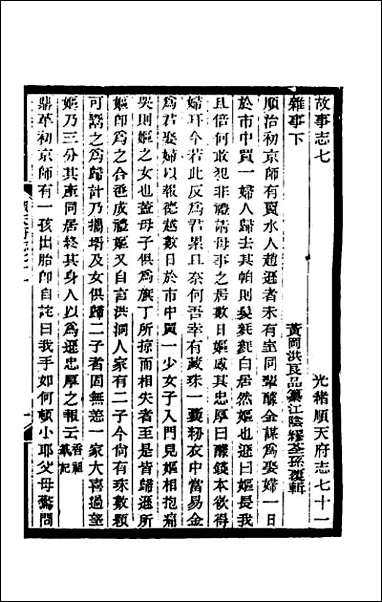 故事志七 光緒順天府志七十一
雜事下 黃岡洪良品纂江陰繆荃孫覆輯
順治初京師有賣水人趙遜者未有室同輩醵金謀爲娶婦一日
於市中買一婦人歸去其帕則髮毿毿白居然嫗也遜曰嫗長我
且倍何敢犯非禮請母事之居數日嫗感其忠厚曰醵錢本欲得
婦耳今若此反爲君累且奈何吾幸有藏珠一囊紉衣中當易金
爲君娶婦以報德越數日於市中買一少女子入門見嫗相抱痛
哭則嫗之女也蓋母子俱爲旗丁所掠而相失至是皆歸遜所
嫗卽爲之合巹成禮嫗又自言洪洞人家有二子尙有珠數顆
可鬻之爲歸計乃攜壻及女俱歸二子者固無恙一家大喜過望
嫗乃三分其產同居終其身人以爲遜忠厚之報云香祖筆記
鼎革初京師有一孩出胎師自詫曰我手如何頓小耶父母驚問